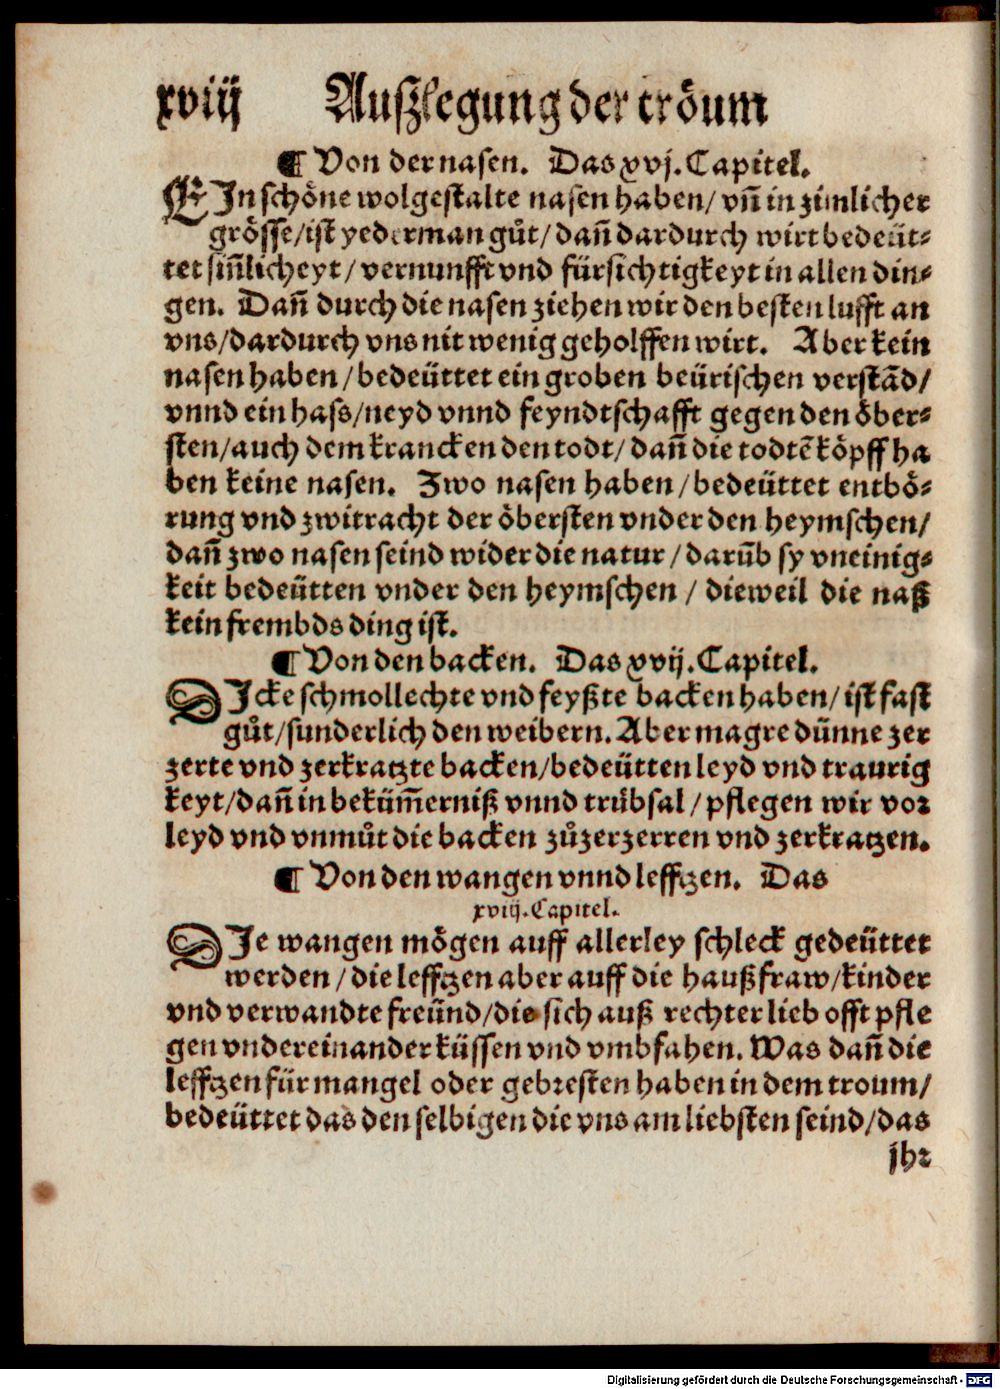 xviij Auſzlegung der tröum
¶ Von der naſen. Das xvj. Capitel.
EIn ſchöne wolgeſtalte naſen haben/ vñ in zimlicher
gröſſe/iſt yederman gůt/dañ dardurch wirt bedeüt⸗
tet ſiñlicheyt/vernunfft vnd fürſichtigkeyt in allen din⸗
gen. Dañ durch die naſen ziehen wir den beſten lufft an
vns/dardurch vns nit wenig geholffen wirt. Aber kein
naſen haben/bedeüttet ein groben beüriſchen verſtãd/
vnnd ein haſs/neyd vnnd feyndtſchafft gegen den öber⸗
ſten/auch dem krancken den todt/dañ die todtẽ köpff ha
ben keine naſen. Zwo naſen haben/bedeüttet entbö⸗
rung vnd zwitracht der öberſten vnder den heymſchen/
dañ zwo naſen ſeind wider die natur/darũb ſy vneinig⸗
keit bedeütten vnder den heymſchen/ dieweil die naß
kein frembds ding iſt.
¶ Von den backen. Das xvij. Capitel.
DIcke ſchmollechte vnd feyßte backen haben/iſt faſt
gůt/ſunderlich den weibern. Aber magre dünne zer
zerte vnd zerkratzte backen/bedeütten leyd vnd traurig
keyt/dañ in beküm̃erniß vnnd trůbſal/pflegen wir voꝛ
leyd vnd vnmůt die backen zůzerzerren vnd zerkratzen.
¶ Von den wangen vnnd lefftzen. Das
xviij. Capitel.
DIe wangen mögen auff allerley ſchleck gedeüttet
werden/die lefftzen aber auff die haußfraw/kinder
vnd verwandte freünd/die ſich auß rechter lieb offt pfle
gen vndereinander küſſen vnd vmbfahen. Was dañ die
lefftzen für mangel oder gebꝛeſten haben in dem troum/
bedeüttet das den ſelbigen die vns am liebſten ſeind/das
jhꝛ
Digitalisierung gefördert durch die Deutsche Forschungsgemeinschaft - DFG